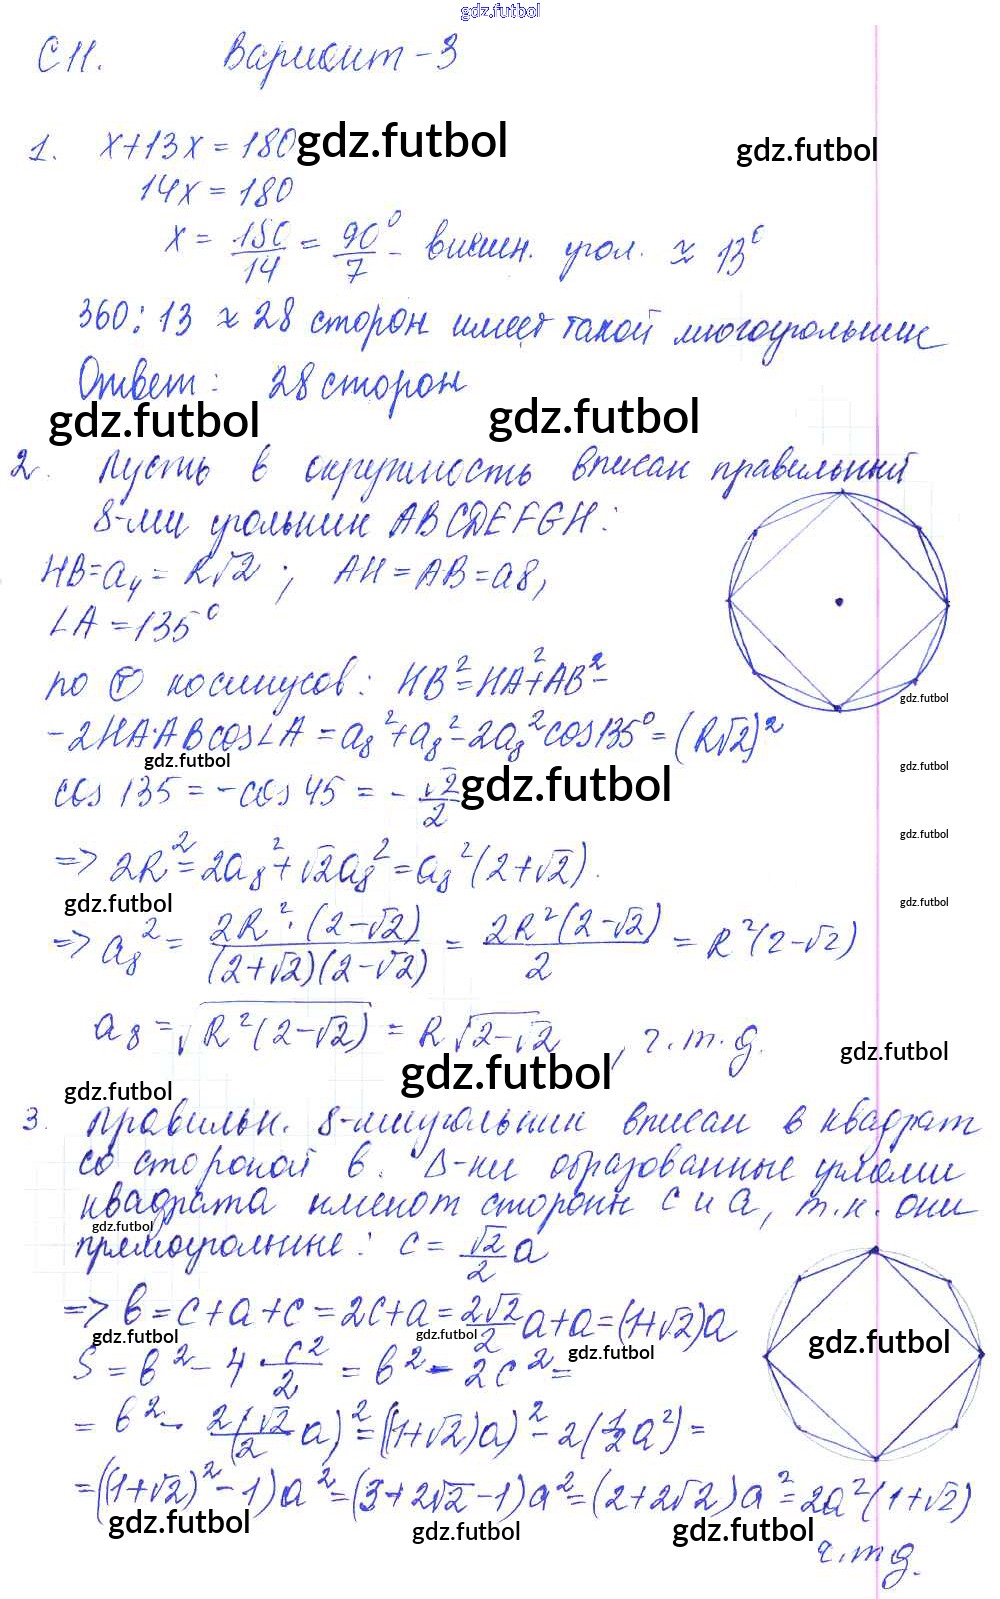 gdz.futbol
С 11. Вариант-3
1. x+13x = 180
gdz.futbol
gdz.futbol
14x = 180
x = 180/14 = 90°/7 - внешн. угол. ≈ 13°
360:13 ≈ 28 сторон имеет такой многоугольник
Ответ: 28 сторон
gdz.futbol
gdz.futbol
2. Пусть в окружность вписан правильный
8-ми угольник ABCDEFGH:
HB=a₄= R√2 ; AH = AB = a8,
∠A = 135°
по Т косинусов: HB²=HA²+AB²-
gdz.futbol
-2HA·AB cos∠A = a₈²+a₈²-2a₈²cos135° = (R√2)²
gdz.futbol
gdz.futbol
cos 135 = -cos 45 = -√2/2
gdz.futbol
gdz.futbol
=> 2R²=2a₈²+√2a₈²=a₈²(2+√2).
gdz.futbol
gdz.futbol
=> a₈² = 2R²·(2-√2)/(2+√2)(2-√2) = 2R²(2-√2)/2 = R²(2-√2)
a₈ = √R²(2-√2) = R√2-√2 , ч.т.д.
gdz.futbol
gdz.futbol
gdz.futbol
3. Правильн. 8-миугольник вписан в квадрат
со стороной в. Δ-ки образованные углами
квадрата имеют стороны с и а, т.к. они
gdz.futbol
прямоугольные: c = √2/2 a
=> b = c+a+c = 2c+a = 2√2/2 a+a = (1+√2)a
gdz.futbol
gdz.futbol
gdz.futbol
gdz.futbol
S = b² - 4·c²/2 = b² - 2c² =
= b² - 2(√2/2 a)² = ((1+√2)a)² - 2(1/2a²) =
= ((1+√2)²-1)a² = (3+2√2-1)a² = (2+2√2)a² = 2a²(1+√2)
gdz.futbol
gdz.futbol
gdz.futbol
ч.тд.